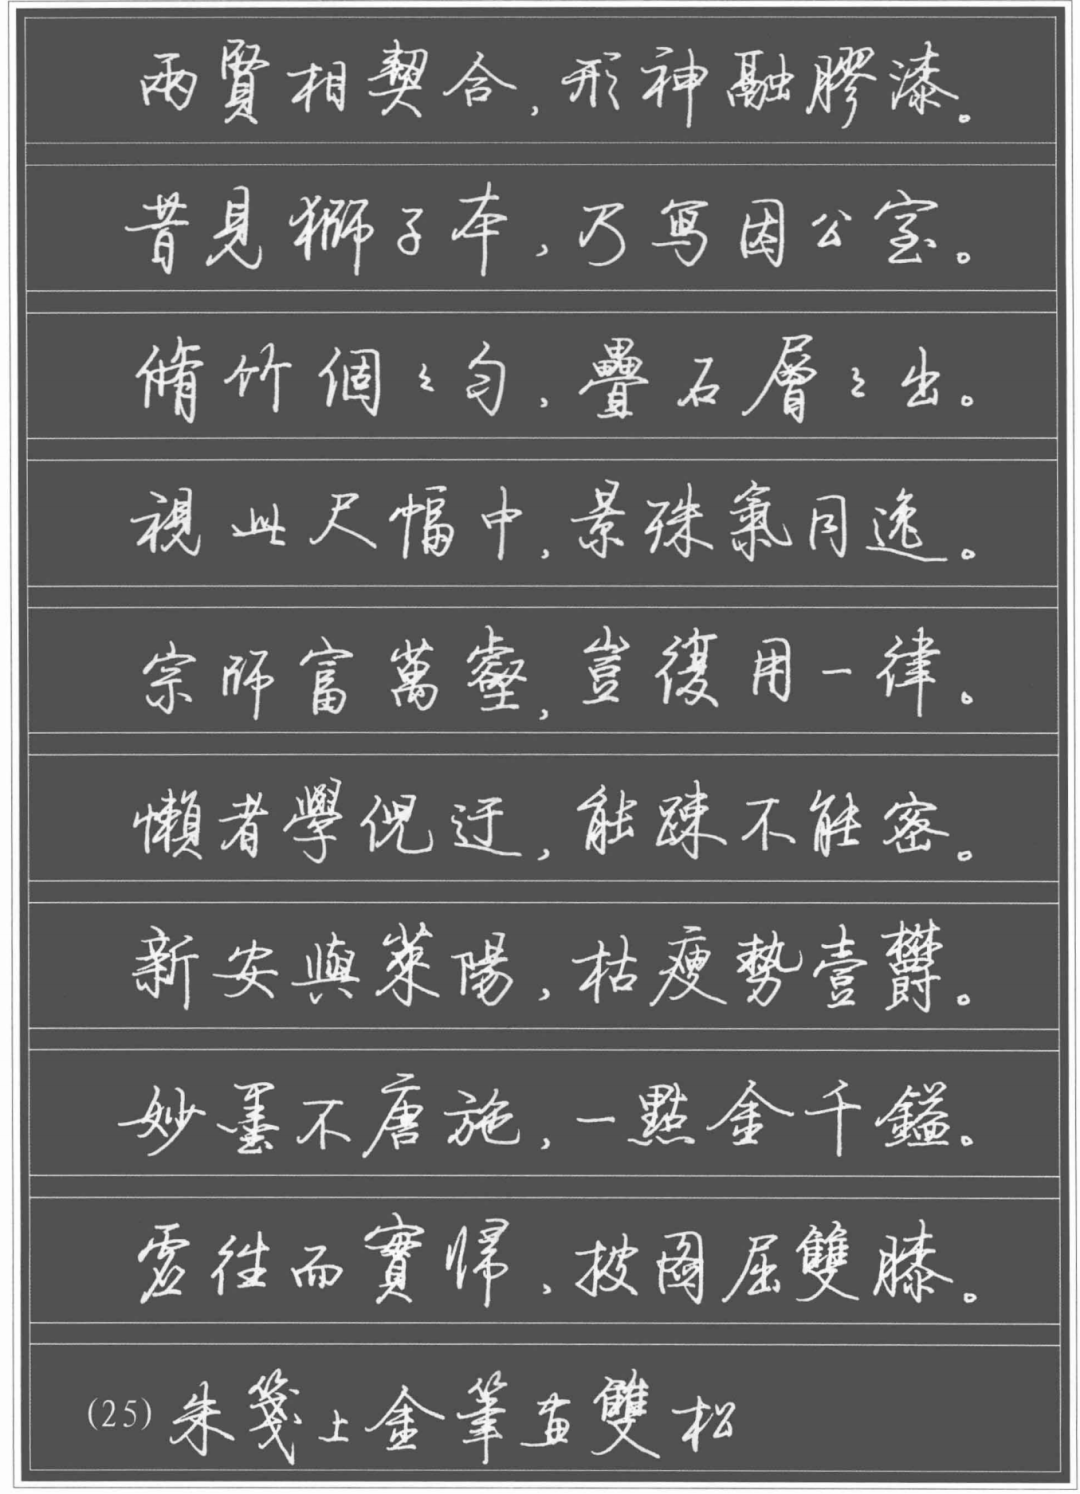 兩賢相契合，形神融膠漆。
昔見獅子本，乃寫因公室。
脩竹個々勻，疊石層々出。
視此尺幅中，景殊氣同逸。
宗師富萬壑，豈復用一律。
懶者學倪迂，能疎不能密。
新安與萊陽，枯瘦勢壹鬱。
妙墨不唐施，一點金千鎰。
虛往而實歸，披圖屈雙膝。
(25) 朱箋上金筆畫雙松